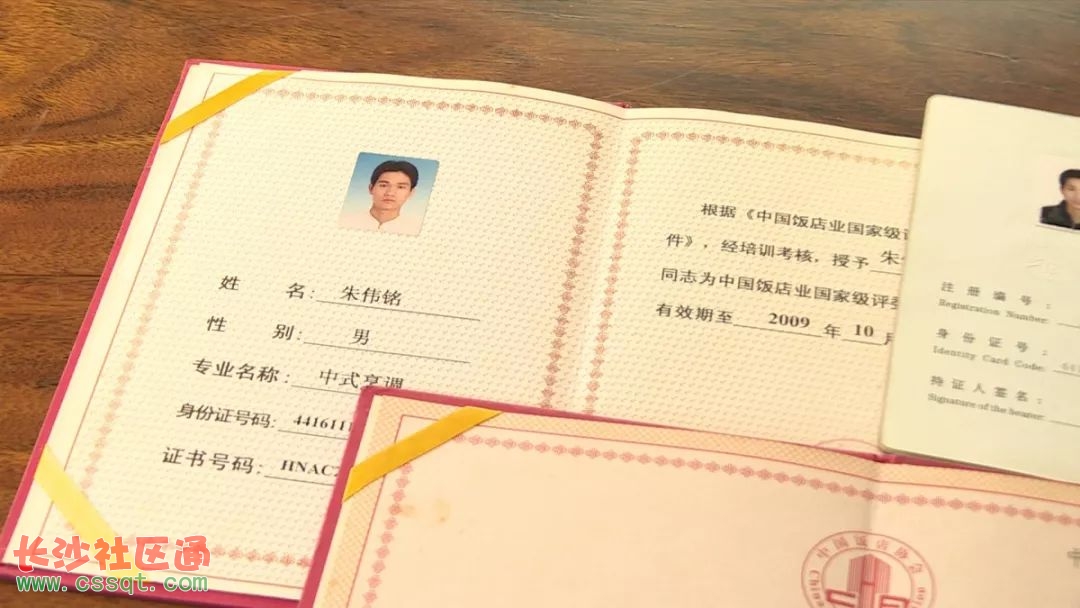 姓 名: 朱伟铭
性 别: 男
专业名称: 中式烹调
身份证号码: 4416111
证书号码: HNAC
根据《中国饭店业国家级评
件》，经培训考核，授予 朱
同志为中国饭店业国家级评委
有效期至 2009 年 10 月
注册编号:
Registration Number:
身份证号:
Identity Card Code:
持证人签名:
Signature of the bearer:
中国饭店协会
China
长沙社区通
www.cssqt.com